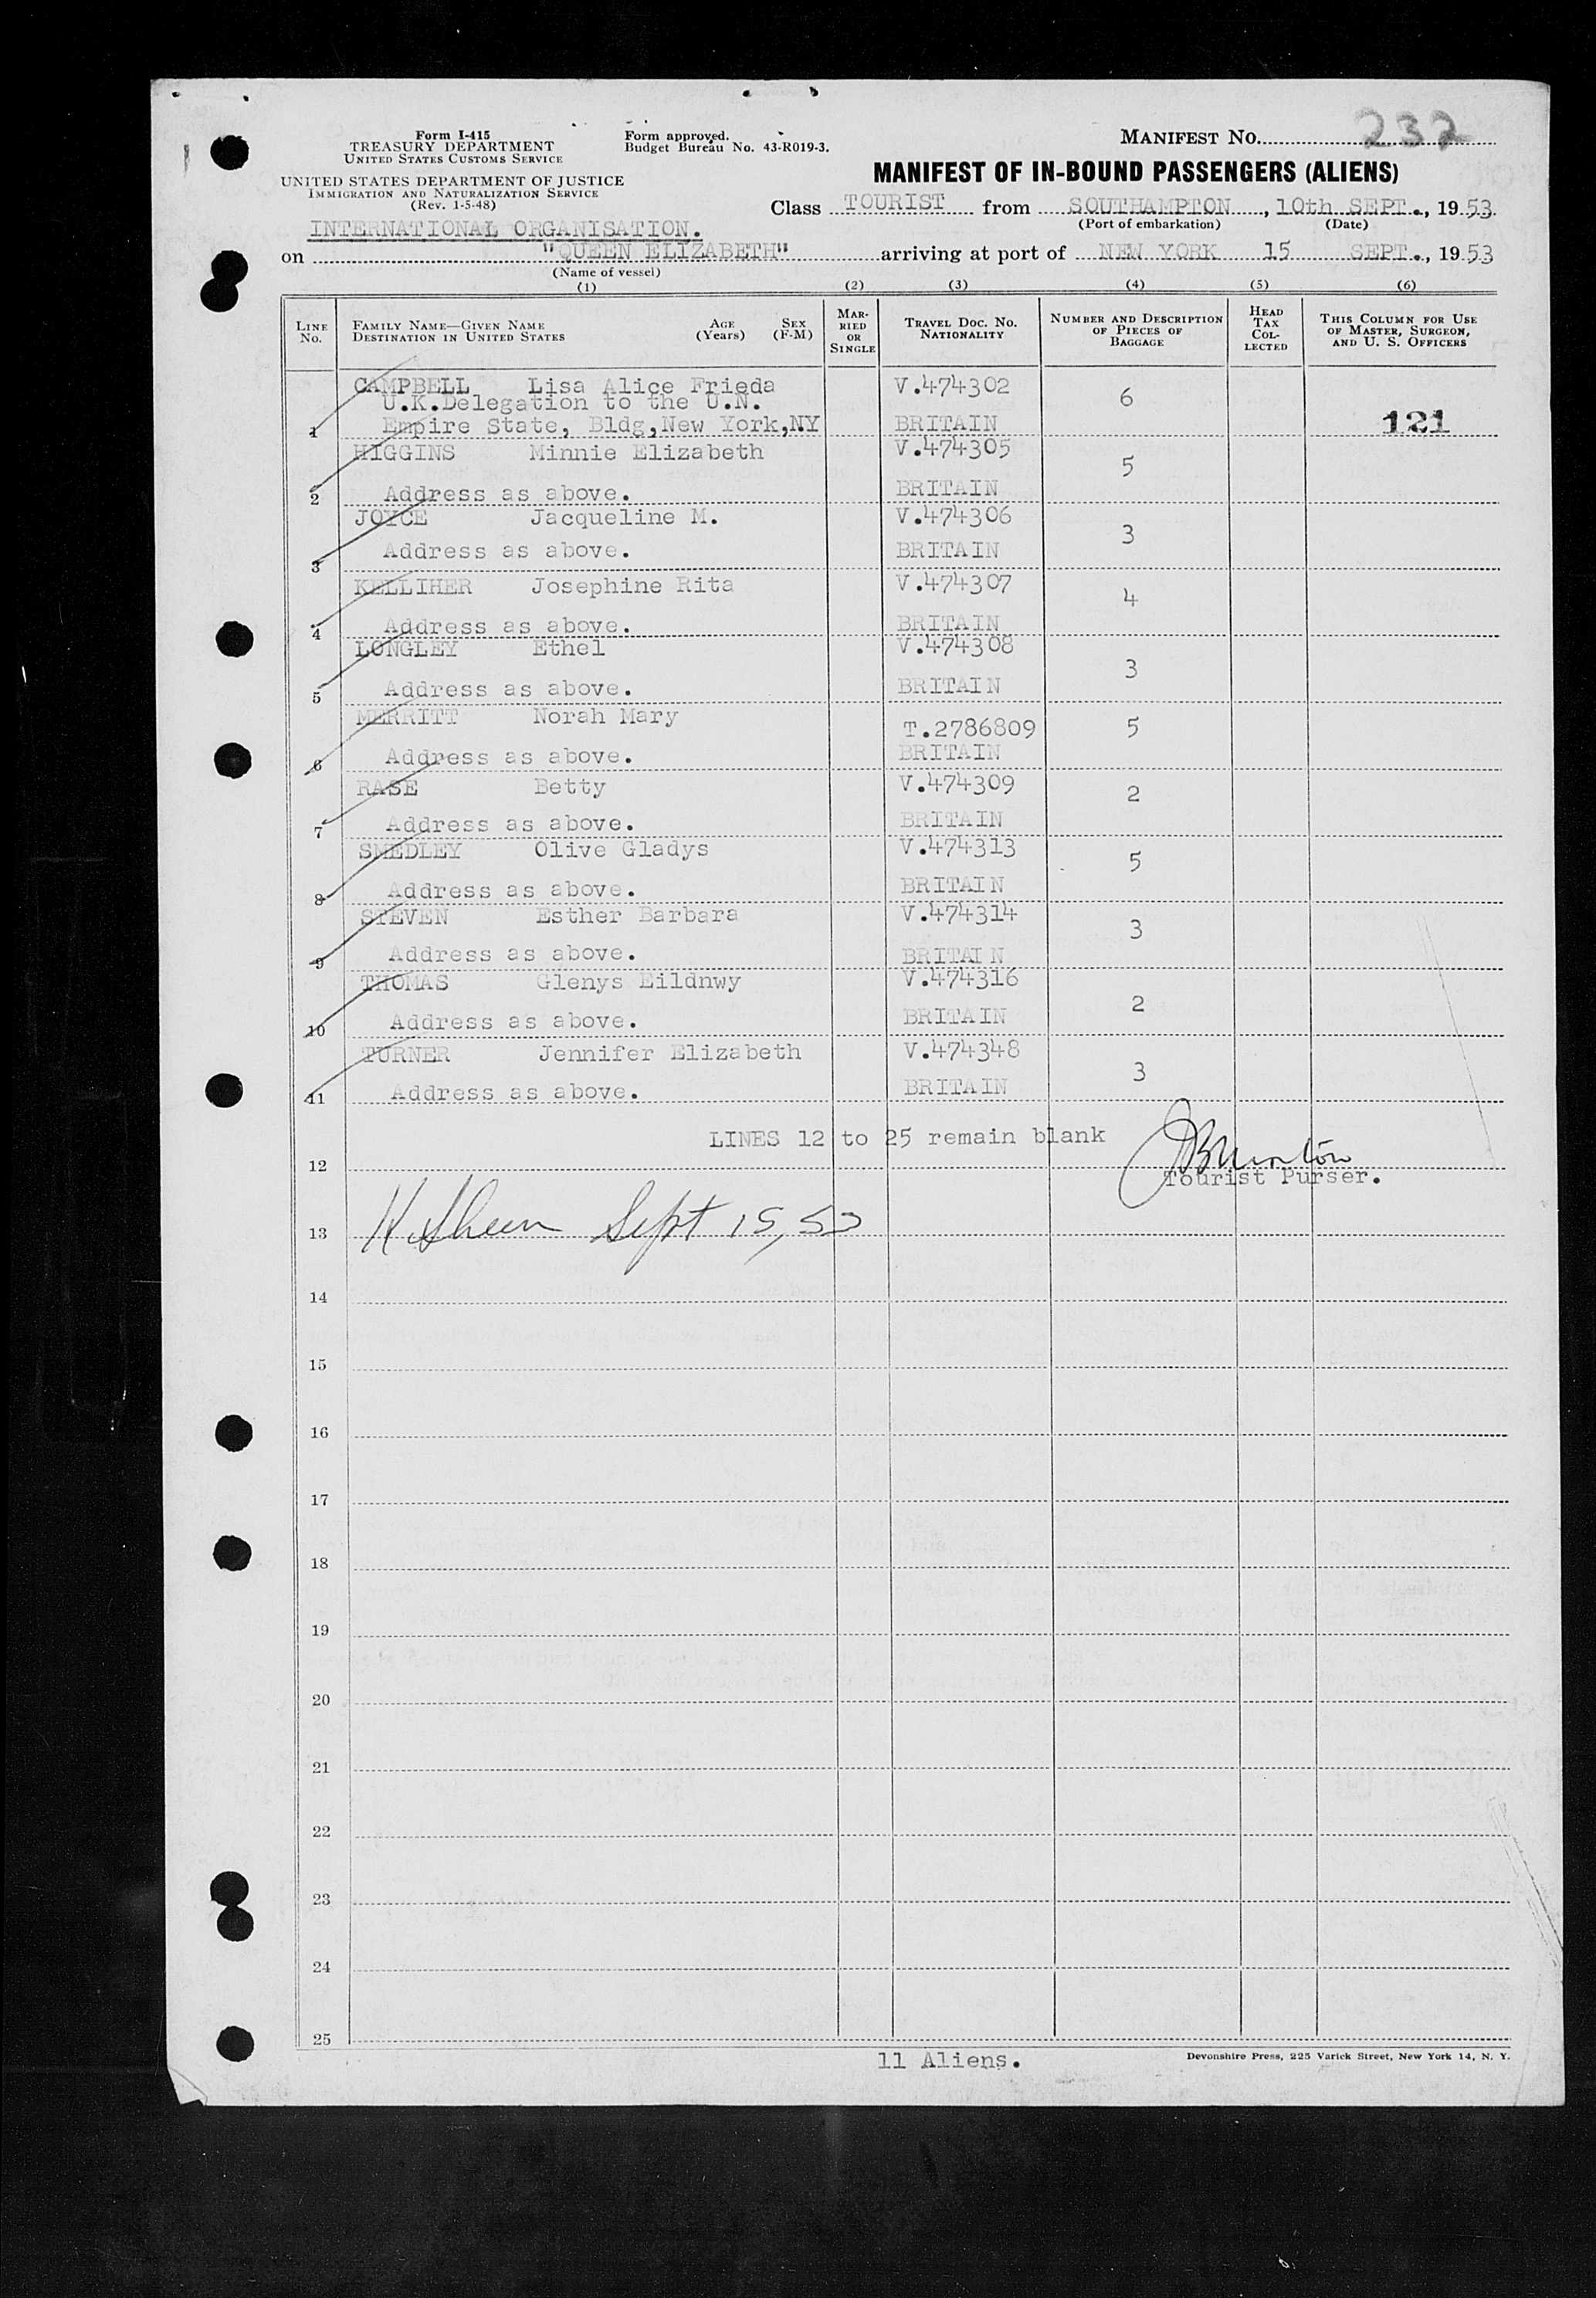 Form I-415
TREASURY DEPARTMENT
UNITED STATES CUSTOMS SERVICE
UNITED STATES DEPARTMENT OF JUSTICE
IMMIGRATION AND NATURALIZATION SERVICE
(Rev. 1-5-48)
Form approved.
Budget Bureau No. 43-R019-3.
MANIFEST No. 232
MANIFEST OF IN-BOUND PASSENGERS (ALIENS)
Class TOURIST from SOUTHAMPTON, 10th SEPT., 19 53
(Port of embarkation) (Date)
INTERNATIONAL ORGANISATION.
on "QUEEN ELIZABETH" arriving at port of NEW YORK 15 SEPT., 19 53
(Name of vessel)
(1) (2) (3) (4) (5) (6)
LINE No. FAMILY NAME—GIVEN NAME DESTINATION IN UNITED STATES AGE (Years) SEX (F-M) MARRIED OR SINGLE TRAVEL DOC. NO. NATIONALITY NUMBER AND DESCRIPTION OF PIECES OF BAGGAGE HEAD TAX COLLECTED THIS COLUMN FOR USE OF MASTER, SURGEON, AND U. S. OFFICERS
CAMPBELL Lisa Alice Frieda V.474302 6
U.K.Delegation to the U.N.
1 Empire State, Bldg,New York,NY BRITAIN 121
HIGGINS Minnie Elizabeth V.474305 5
2 Address as above. BRITAIN
JOYCE Jacqueline M. V.474306 3
3 Address as above. BRITAIN
KELLIHER Josephine Rita V.474307 4
4 Address as above. BRITAIN
LONGLEY Ethel V.474308 3
5 Address as above. BRITAIN
MERRITT Norah Mary T.2786809 5
6 Address as above. BRITAIN
RASE Betty V.474309 2
7 Address as above. BRITAIN
SMEDLEY Olive Gladys V.474313 5
8 Address as above. BRITAIN
STEVEN Esther Barbara V.474314 3
9 Address as above. BRITAIN
THOMAS Glenys Eildnwy V.474316 2
10 Address as above. BRITAIN
TURNER Jennifer Elizabeth V.474348 3
11 Address as above. BRITAIN
LINES 12 to 25 remain blank
12
Tourist Purser.
13 Sept 15, 53
14
15
16
17
18
19
20
21
22
23
24
25
11 Aliens.
Devonshire Press, 225 Varick Street, New York 14, N. Y.